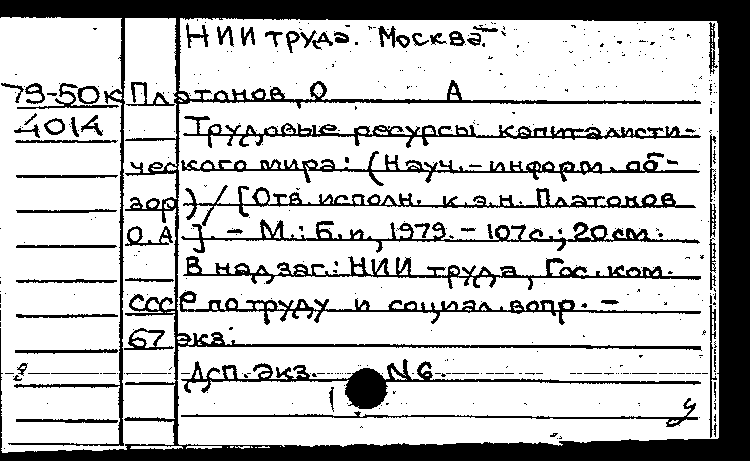 НИИ труда. Москва.
79-50к Платонов, О А
4014 Трудовые ресурсы капиталисти-
ческого мира: (Науч.-информ. об-
зор) / [Отв. исполн. к.э.н. Платонов
О.А.]. - М.: Б.и., 1979. - 107с.; 20см.
В надзаг.: НИИ труда, Гос. ком.
СССР по труду и социал. вопр. -
67 экз.
Деп. экз. N6.